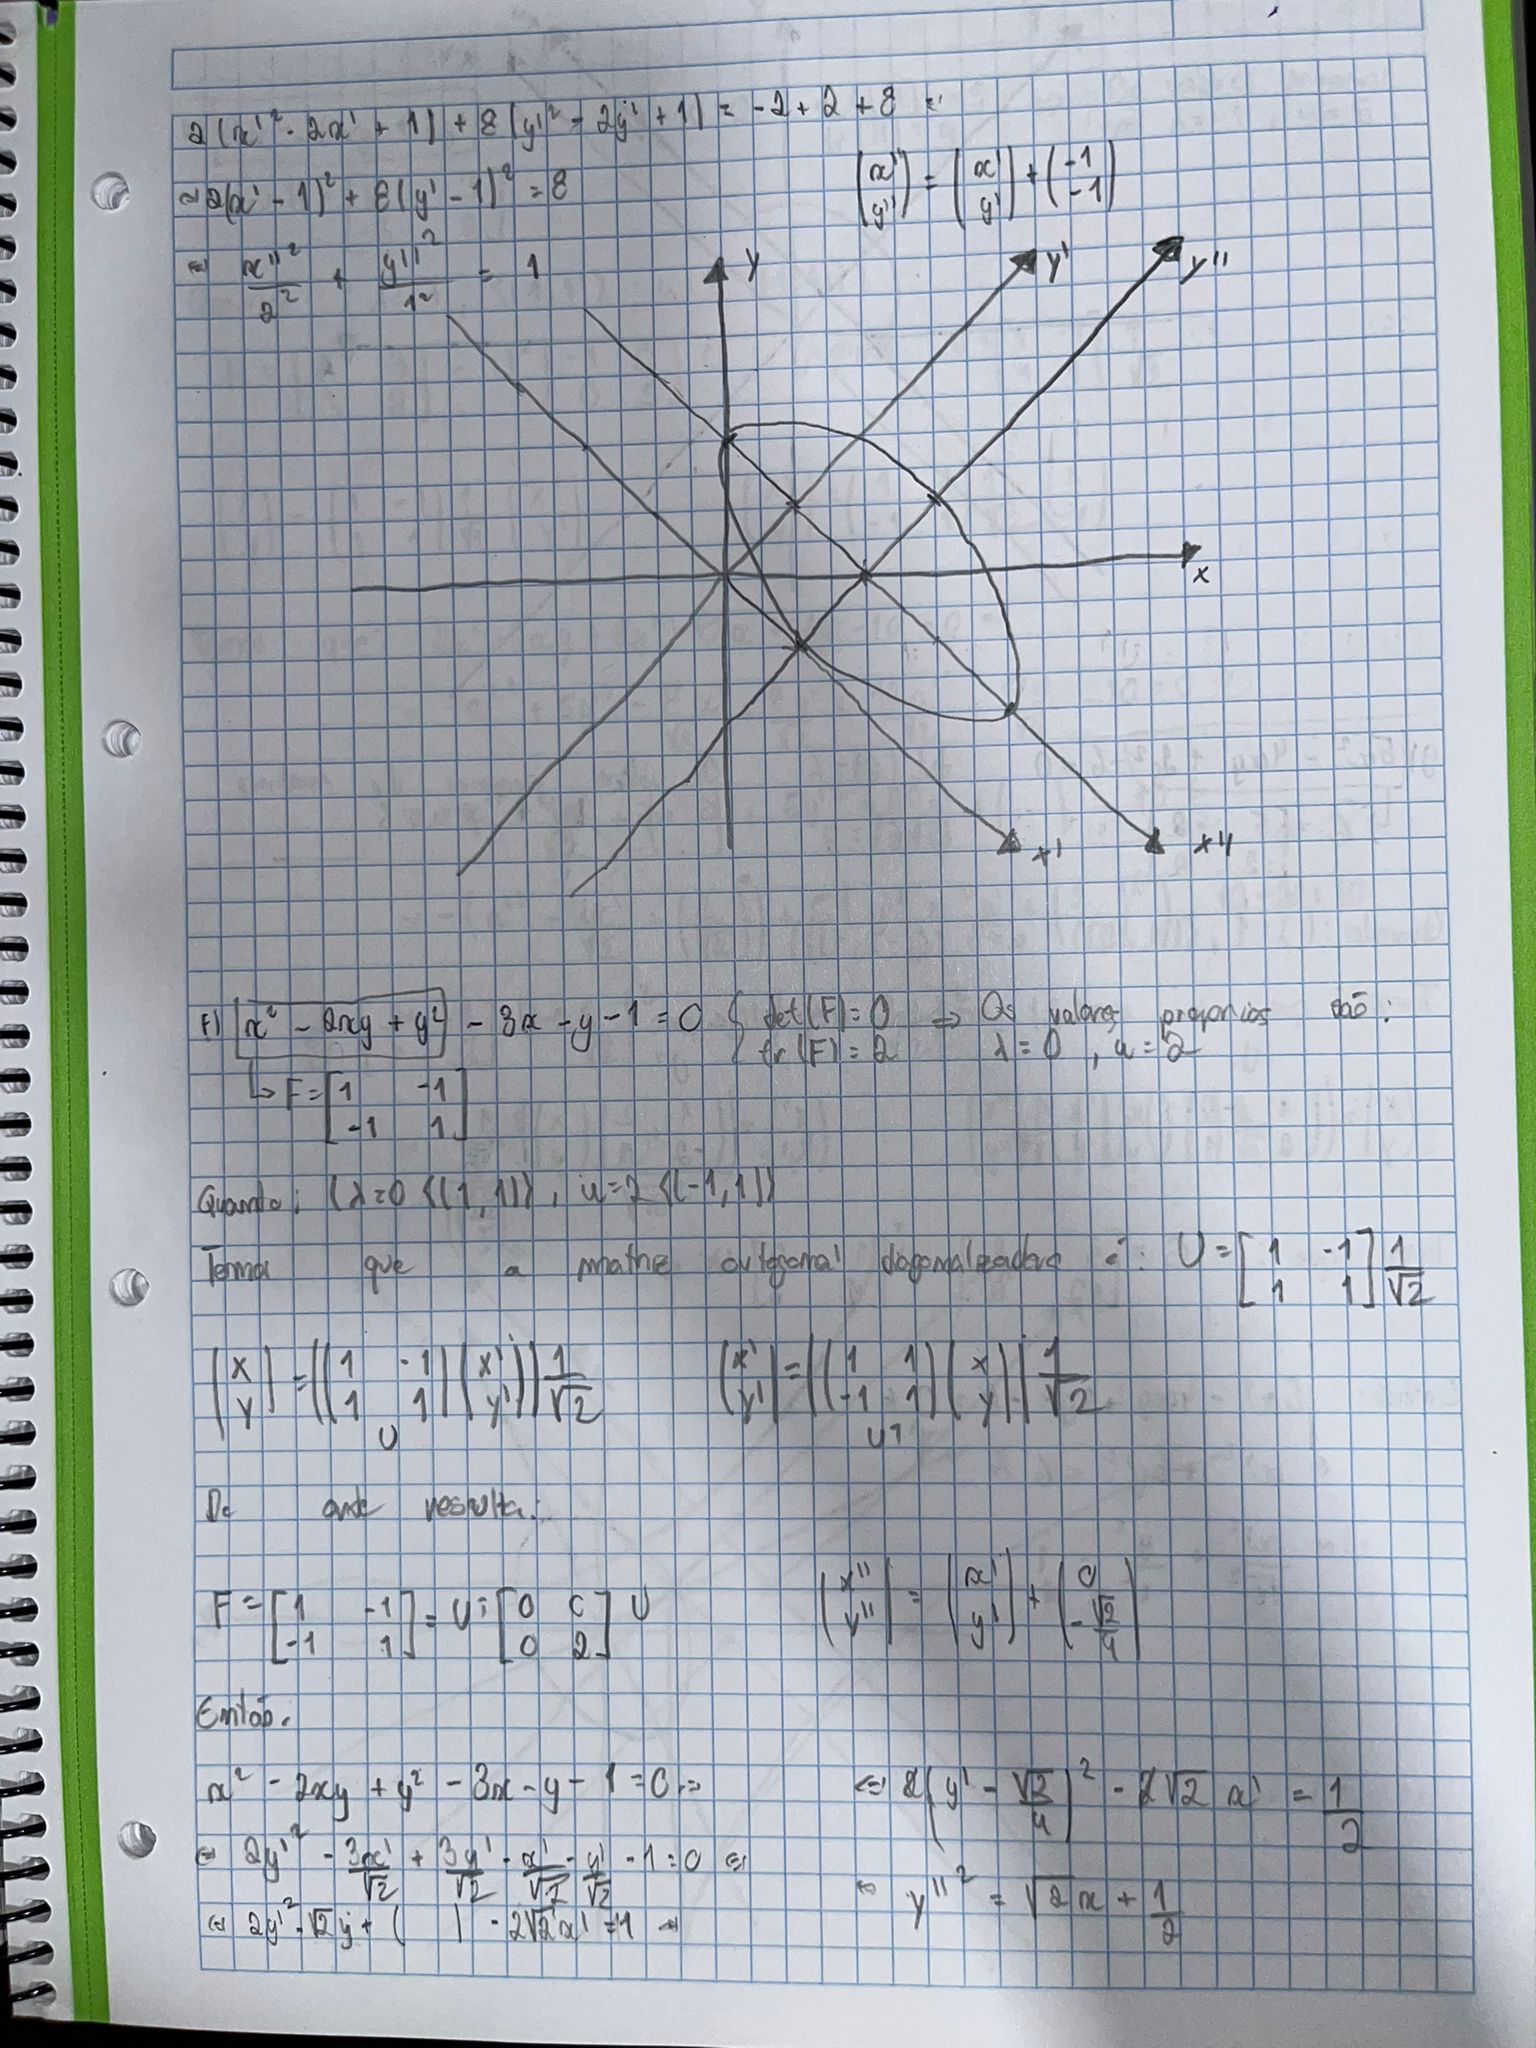 2(x'² - 2x' + 1) + 8(y'² - 2y' + 1) = -2 + 2 + 8 ⇔
⇔ 2(x' - 1)² + 8(y' - 1)² = 8
(x'' y'') = (x' y') + (-1 -1)
⇔ x''²/2² + y''²/1² = 1
y
y'
y''
x
x'
x''
F) x² - 2xy + y² - 3x - y - 1 = 0 { det(F) = 0 ⇒ Os valores próprios são:
tr(F) = 2 λ = 0 , u = 2
↳ F = [1 -1
-1 1]
Quando: (λ=0 <(1,1)>, u=2 <(-1,1)>
Temos que a matriz ortogonal diagonalizadora é: U = [1 -1
1 1] 1/√2
(x y) = ((1 -1 1 1)(x' y')) 1/√2
U
(x' y') = ((1 1 -1 1)(x y)) 1/√2
De onde resulta:
F = [1 -1 -1 1] = U [0 0 0 2] U
(x'' y'') = (x' y') + (0 -√2/4)
Então:
x² - 2xy + y² - 3x - y - 1 = 0 ⇔
⇔ 2y'² - 3x'/√2 + 3y'/√2 - x'/√2 - y'/√2 - 1 = 0 ⇔
⇔ 2y'² - √2y + ( ) - 2√2x' = 1 ⇔
⇔ 2(y' - /4)² - 2√2 x' = 1/2
⇔ y''² = √2x + 1/2